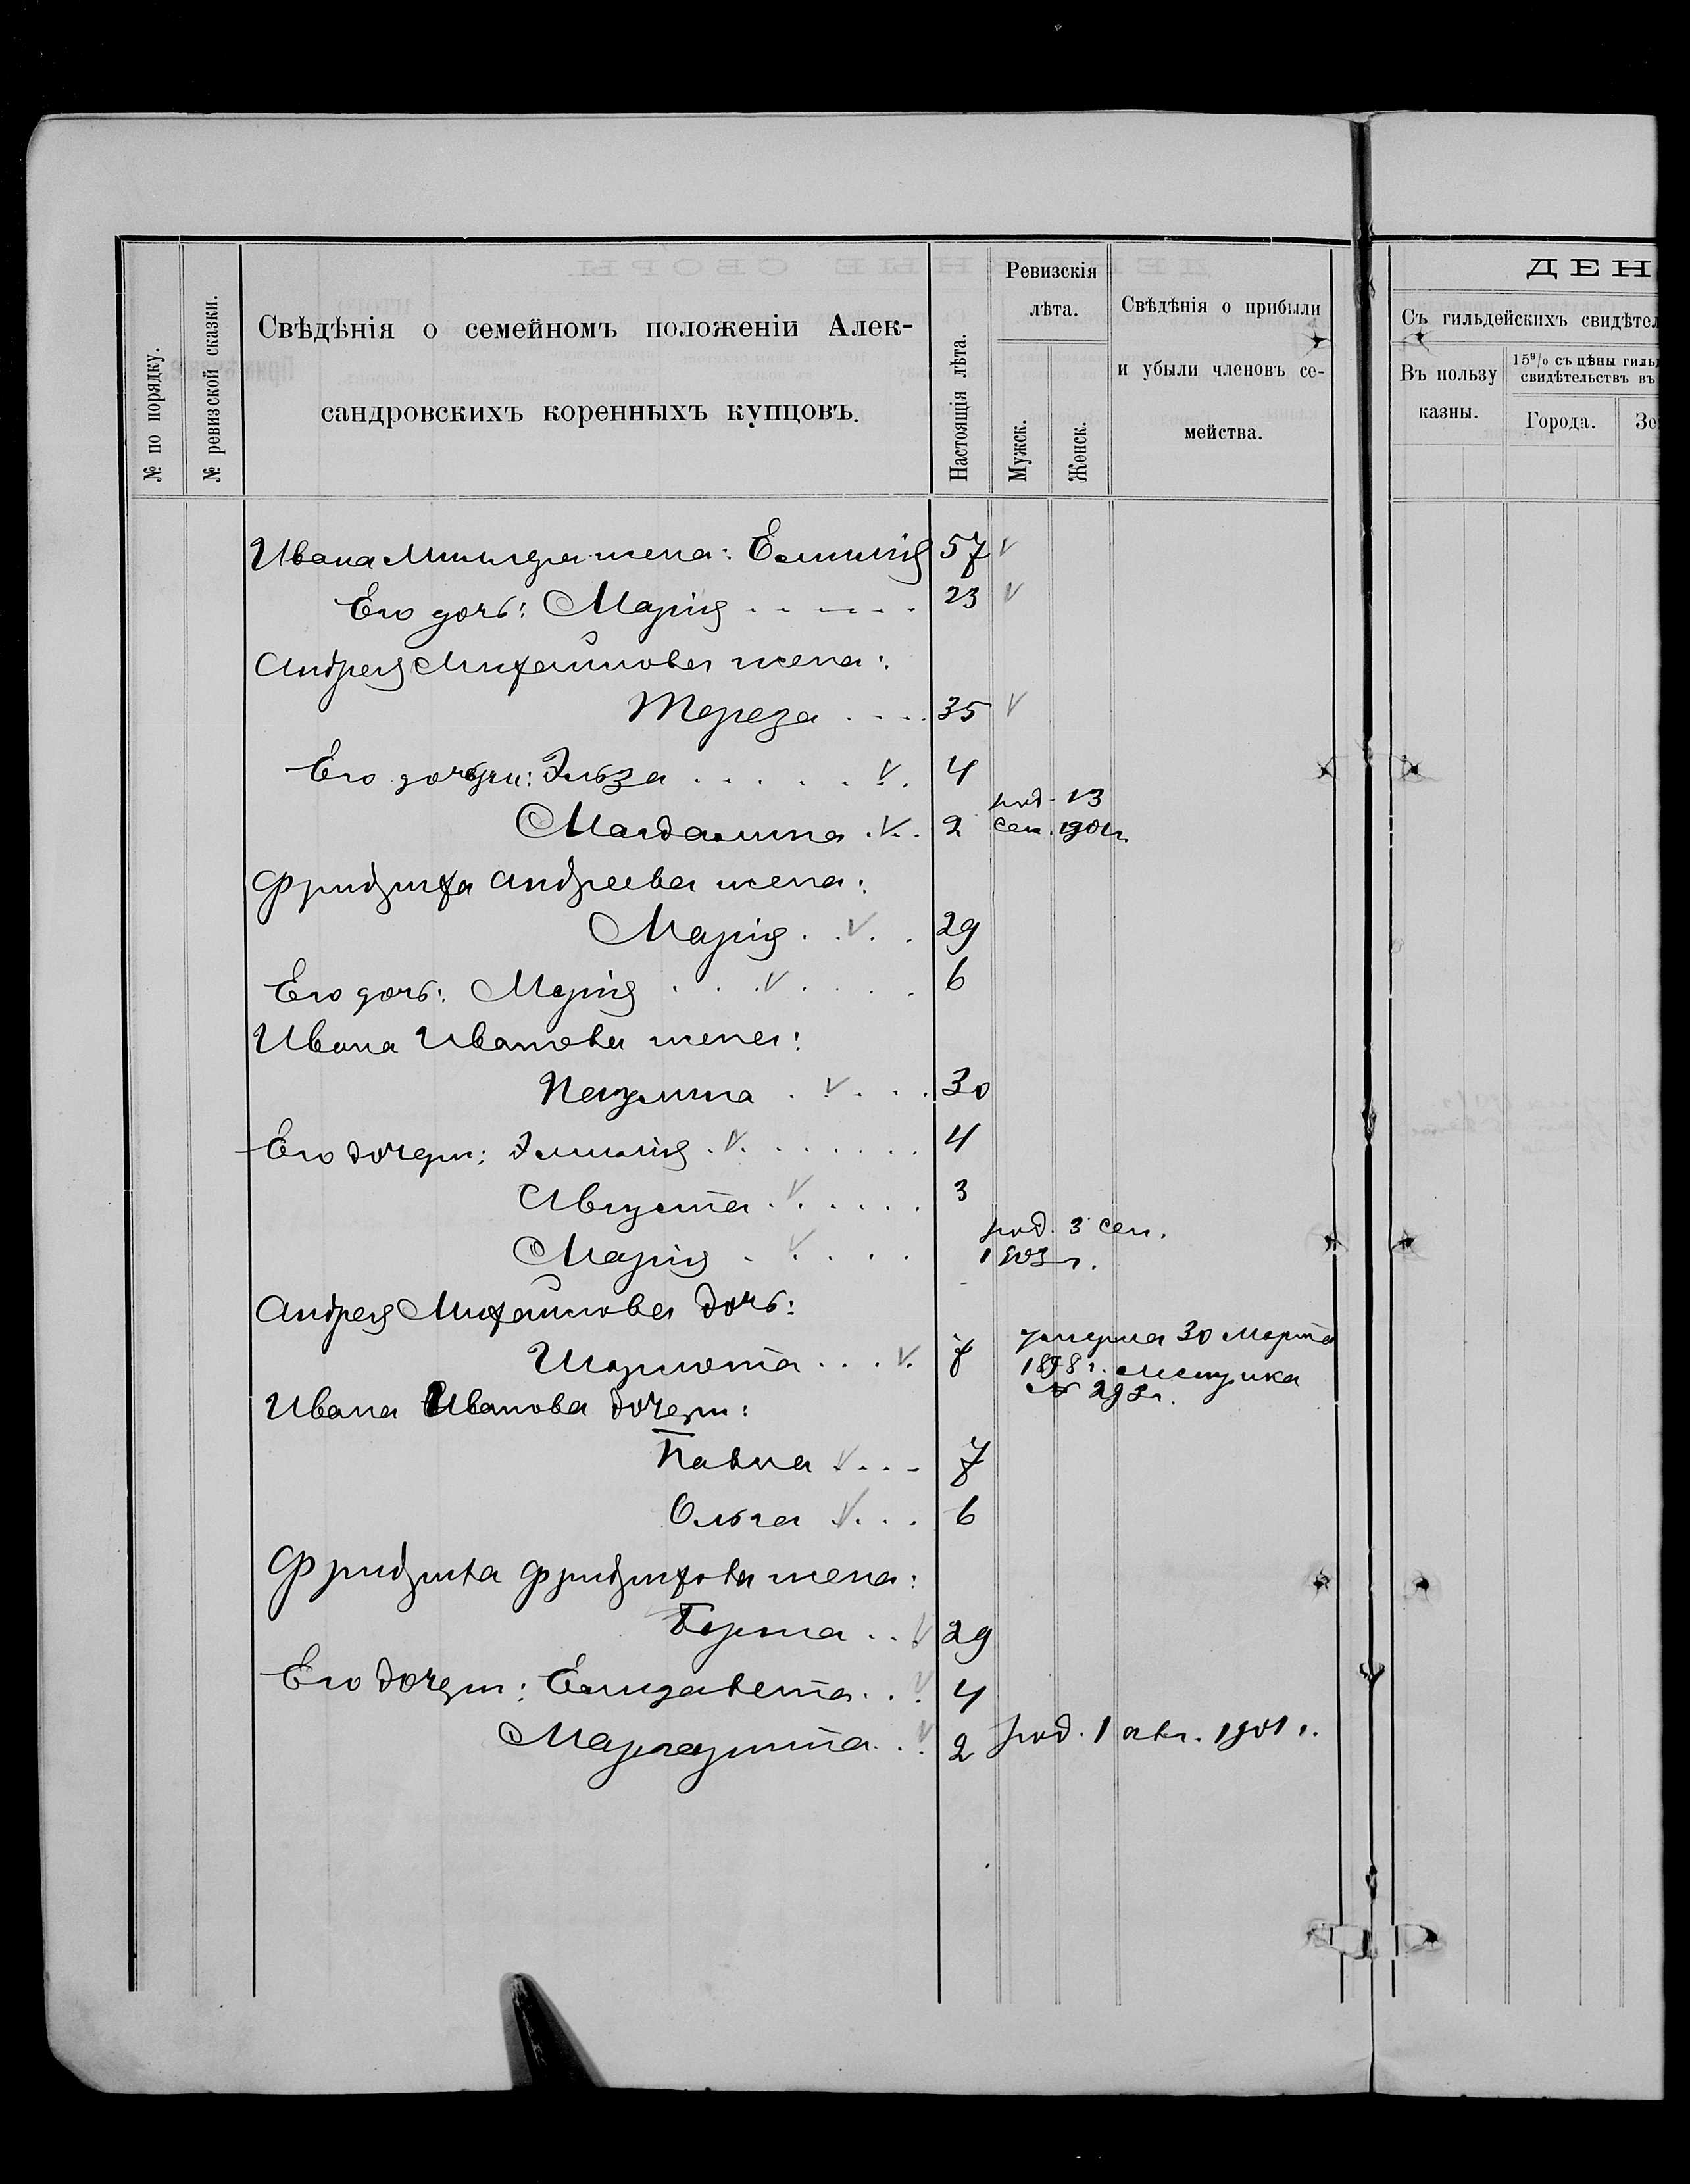 № по порядку.
№ ревизской сказки.
Свѣдѣнія о семейномъ положеніи Алек-
сандровскихъ коренныхъ купцовъ.
Настоящія лѣта.
Ревизскія
лѣта.
Мужск.
Женск.
Свѣдѣнія о прибыли
и убыли членовъ се-
мейства.
ДЕН
Съ гильдейскихъ свидѣтел
Въ пользу
казны.
15% съ цѣны гиль
свидѣтельствъ въ
Города.
Зе
Ивана жена: Емилія 57 v
Его дочь: Марія 23 v
Андрея Михайлова жена:
Тереза 35 v
Его дочери: Эльза v 4
Магдалина v 2 род. 13
сен. 1901 г.
Фридриха Андреева жена:
Марія v 29
Его дочь: Марія v 6
Ивана Иванова жена:
Паулина v 30
Его дочери: Эмилія v 4
Августа v 3
Марія v род. 3 сен.
1903 г.
Андрея Михайлова дочь:
Шарлота v 7 умерла 30 Марта
1898 г.
№
Ивана Иванова дочери:
Павла v 7
Ольга v 6
Фридриха Фридрихова жена:
Берта v 29
Его дочери: Елизавета v 4
Маргарита v 2 род. 1 авг. 1901 г.